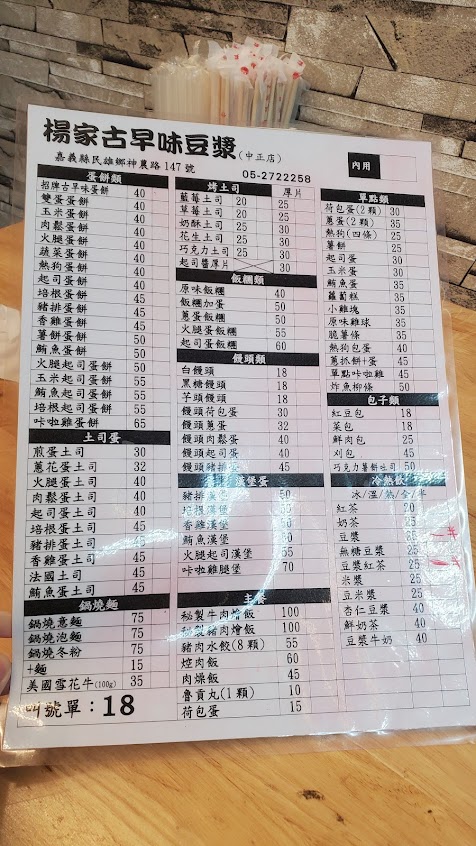 楊家古早味豆漿(中正店)
嘉義縣民雄鄉神農路147號
05-2722258
內用
蛋餅類
招牌古早味蛋餅 40
雙蛋蛋餅 40
玉米蛋餅 40
肉鬆蛋餅 40
火腿蛋餅 40
蔬菜蛋餅 40
熱狗蛋餅 40
起司蛋餅 40
培根蛋餅 50
豬排蛋餅 50
香雞蛋餅 50
薯餅蛋餅 50
鮪魚蛋餅 50
火腿起司蛋餅 50
玉米起司蛋餅 55
鮪魚起司蛋餅 55
培根起司蛋餅 60
咔啦雞蛋餅 65
土司蛋
煎蛋土司 30
蔥花蛋土司 32
火腿蛋土司 40
肉鬆蛋土司 40
起司蛋土司 40
培根蛋土司 45
豬排蛋土司 45
香雞蛋土司 45
法國土司 45
鮪魚蛋土司 45
鍋燒麵
鍋燒意麵 75
鍋燒泡麵 75
鍋燒冬粉 75
+麵 15
美國雪花牛(100g) 35
叫號單：18
烤土司 厚片
藍莓土司 20 25
草莓土司 20 25
奶酥土司 25 30
花生土司 25 30
巧克力土司 25 30
起司醬厚片 30
飯糰類
原味飯糰 40
飯糰加蛋 50
蔥蛋飯糰 50
火腿蛋飯糰 55
起司蛋飯糰 60
饅頭類
白饅頭 18
黑糖饅頭 18
芋頭饅頭 18
饅頭荷包蛋 30
饅頭蔥蛋 32
饅頭肉鬆蛋 40
饅頭起司蛋 40
饅頭豬排蛋 45
漢堡蛋
豬排漢堡 50
培根漢堡 50
香雞漢堡 50
鮪魚漢堡 50
火腿起司漢堡 55
咔啦雞腿堡 70
主餐
秘製牛肉燴飯 100
秘製豬肉燴飯 100
豬肉水餃(8顆) 55
焢肉飯 60
肉燥飯 45
魯貢丸(1顆) 10
荷包蛋 15
單點類
荷包蛋(2顆) 30
蔥蛋(2顆) 35
熱狗(四條) 25
薯餅 25
起司蛋 30
玉米蛋 30
鮪魚蛋 35
蘿蔔糕 35
小雞塊 35
原味雞球 35
脆薯條 35
熱狗包蛋 40
蔥抓餅+蛋 45
單點咔啦雞 45
炸魚柳條 50
包子類
紅豆包 18
菜包 18
鮮肉包 25
刈包 45
巧克力薯餅吐司 50
冷熱飲
冰/溫/熱/全/半
紅茶 20
奶茶 25
豆漿 25
無糖豆漿 25
豆漿紅茶 25
米漿 25
豆米漿 25
杏仁豆漿 40
鮮奶茶 40
豆漿牛奶 40